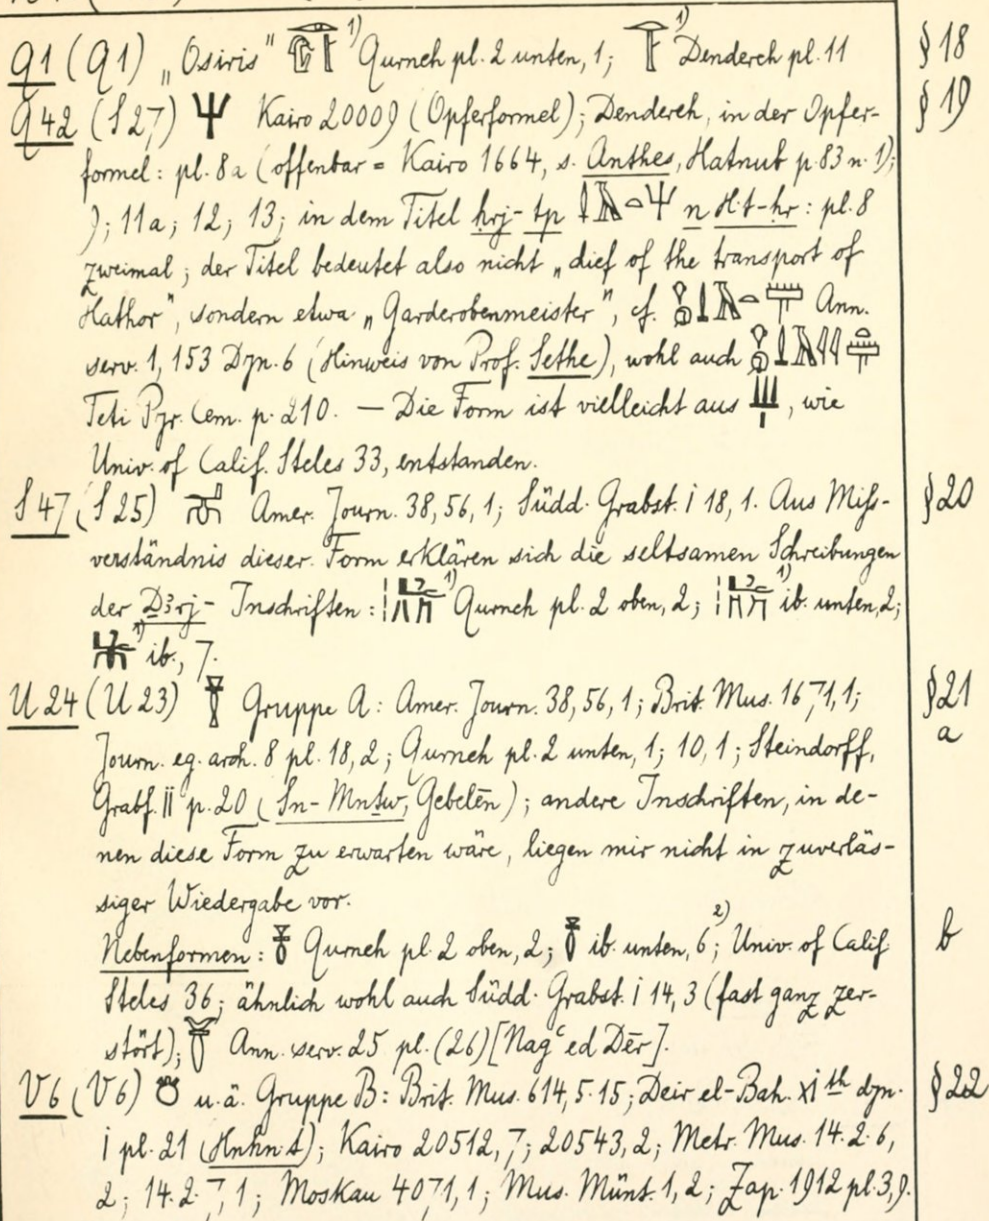 Q1 (Q1) „Osiris" 𓊨𓁹 ¹⁾ Qurneh pl. 2 unten, 1; ¹⁾ Dendereh pl. 11 § 18
Q 42 (S 27) Kairo 20009 (Opferformel); Dendereh, in der Opfer- § 19
formel: pl. 8a (offenbar = Kairo 1664, s. Anthes, Hatnub p. 83 n. 1);
); 11a; 12; 13; in dem Titel ḥrj-tp n Ḥ.t-ḥr: pl. 8
zweimal; der Titel bedeutet also nicht „chief of the transport of
Hathor", sondern etwa „Garderobenmeister", cf. Ann.
serv. 1, 153 Dyn. 6 (Hinweis von Prof. Sethe), wohl auch
Teti Pyr. Cem. p. 210. — Die Form ist vielleicht aus , wie
Univ. of Calif. Steles 33, entstanden.
S 47 (S 25) Amer. Journ. 38, 56, 1; Südd. Grabst. I 18, 1. Aus Miß- § 20
verständnis dieser Form erklären sich die seltsamen Schreibungen
der Ḏꜣrj- Inschriften: ¹⁾ Qurneh pl. 2 oben, 2; ¹⁾ ib. unten, 2;
¹⁾ ib., 7.
U 24 (U 23) Gruppe A: Amer. Journ. 38, 56, 1; Brit. Mus. 1671, 1; § 21
Journ. eg. arch. 8 pl. 18, 2; Qurneh pl. 2 unten, 1; 10, 1; Steindorff, a
Grabf. II p. 20 (In-Mnṯw, Gebelēn); andere Inschriften, in de-
nen diese Form zu erwarten wäre, liegen mir nicht in zuverläs-
siger Wiedergabe vor.
Nebenformen: Qurneh pl. 2 oben, 2; ib. unten, 6 ²⁾; Univ. of Calif. b
Steles 36; ähnlich wohl auch Südd. Grabst. I 14, 3 (fast ganz zer-
stört); Ann. serv. 25 pl. (26) [Nagʿ ed Dēr].
V6 (V6) u. ä. Gruppe B: Brit. Mus. 614, 5. 15; Deir el-Bah. XIth dyn. § 22
I pl. 21 (Hnhn.t); Kairo 20512, 7; 20543, 2; Metr. Mus. 14. 2. 6,
2; 14. 2. 7, 1; Moskau 4071, 1; Mus. Münt. 1, 2; Zap. 1912 pl. 3, 9.